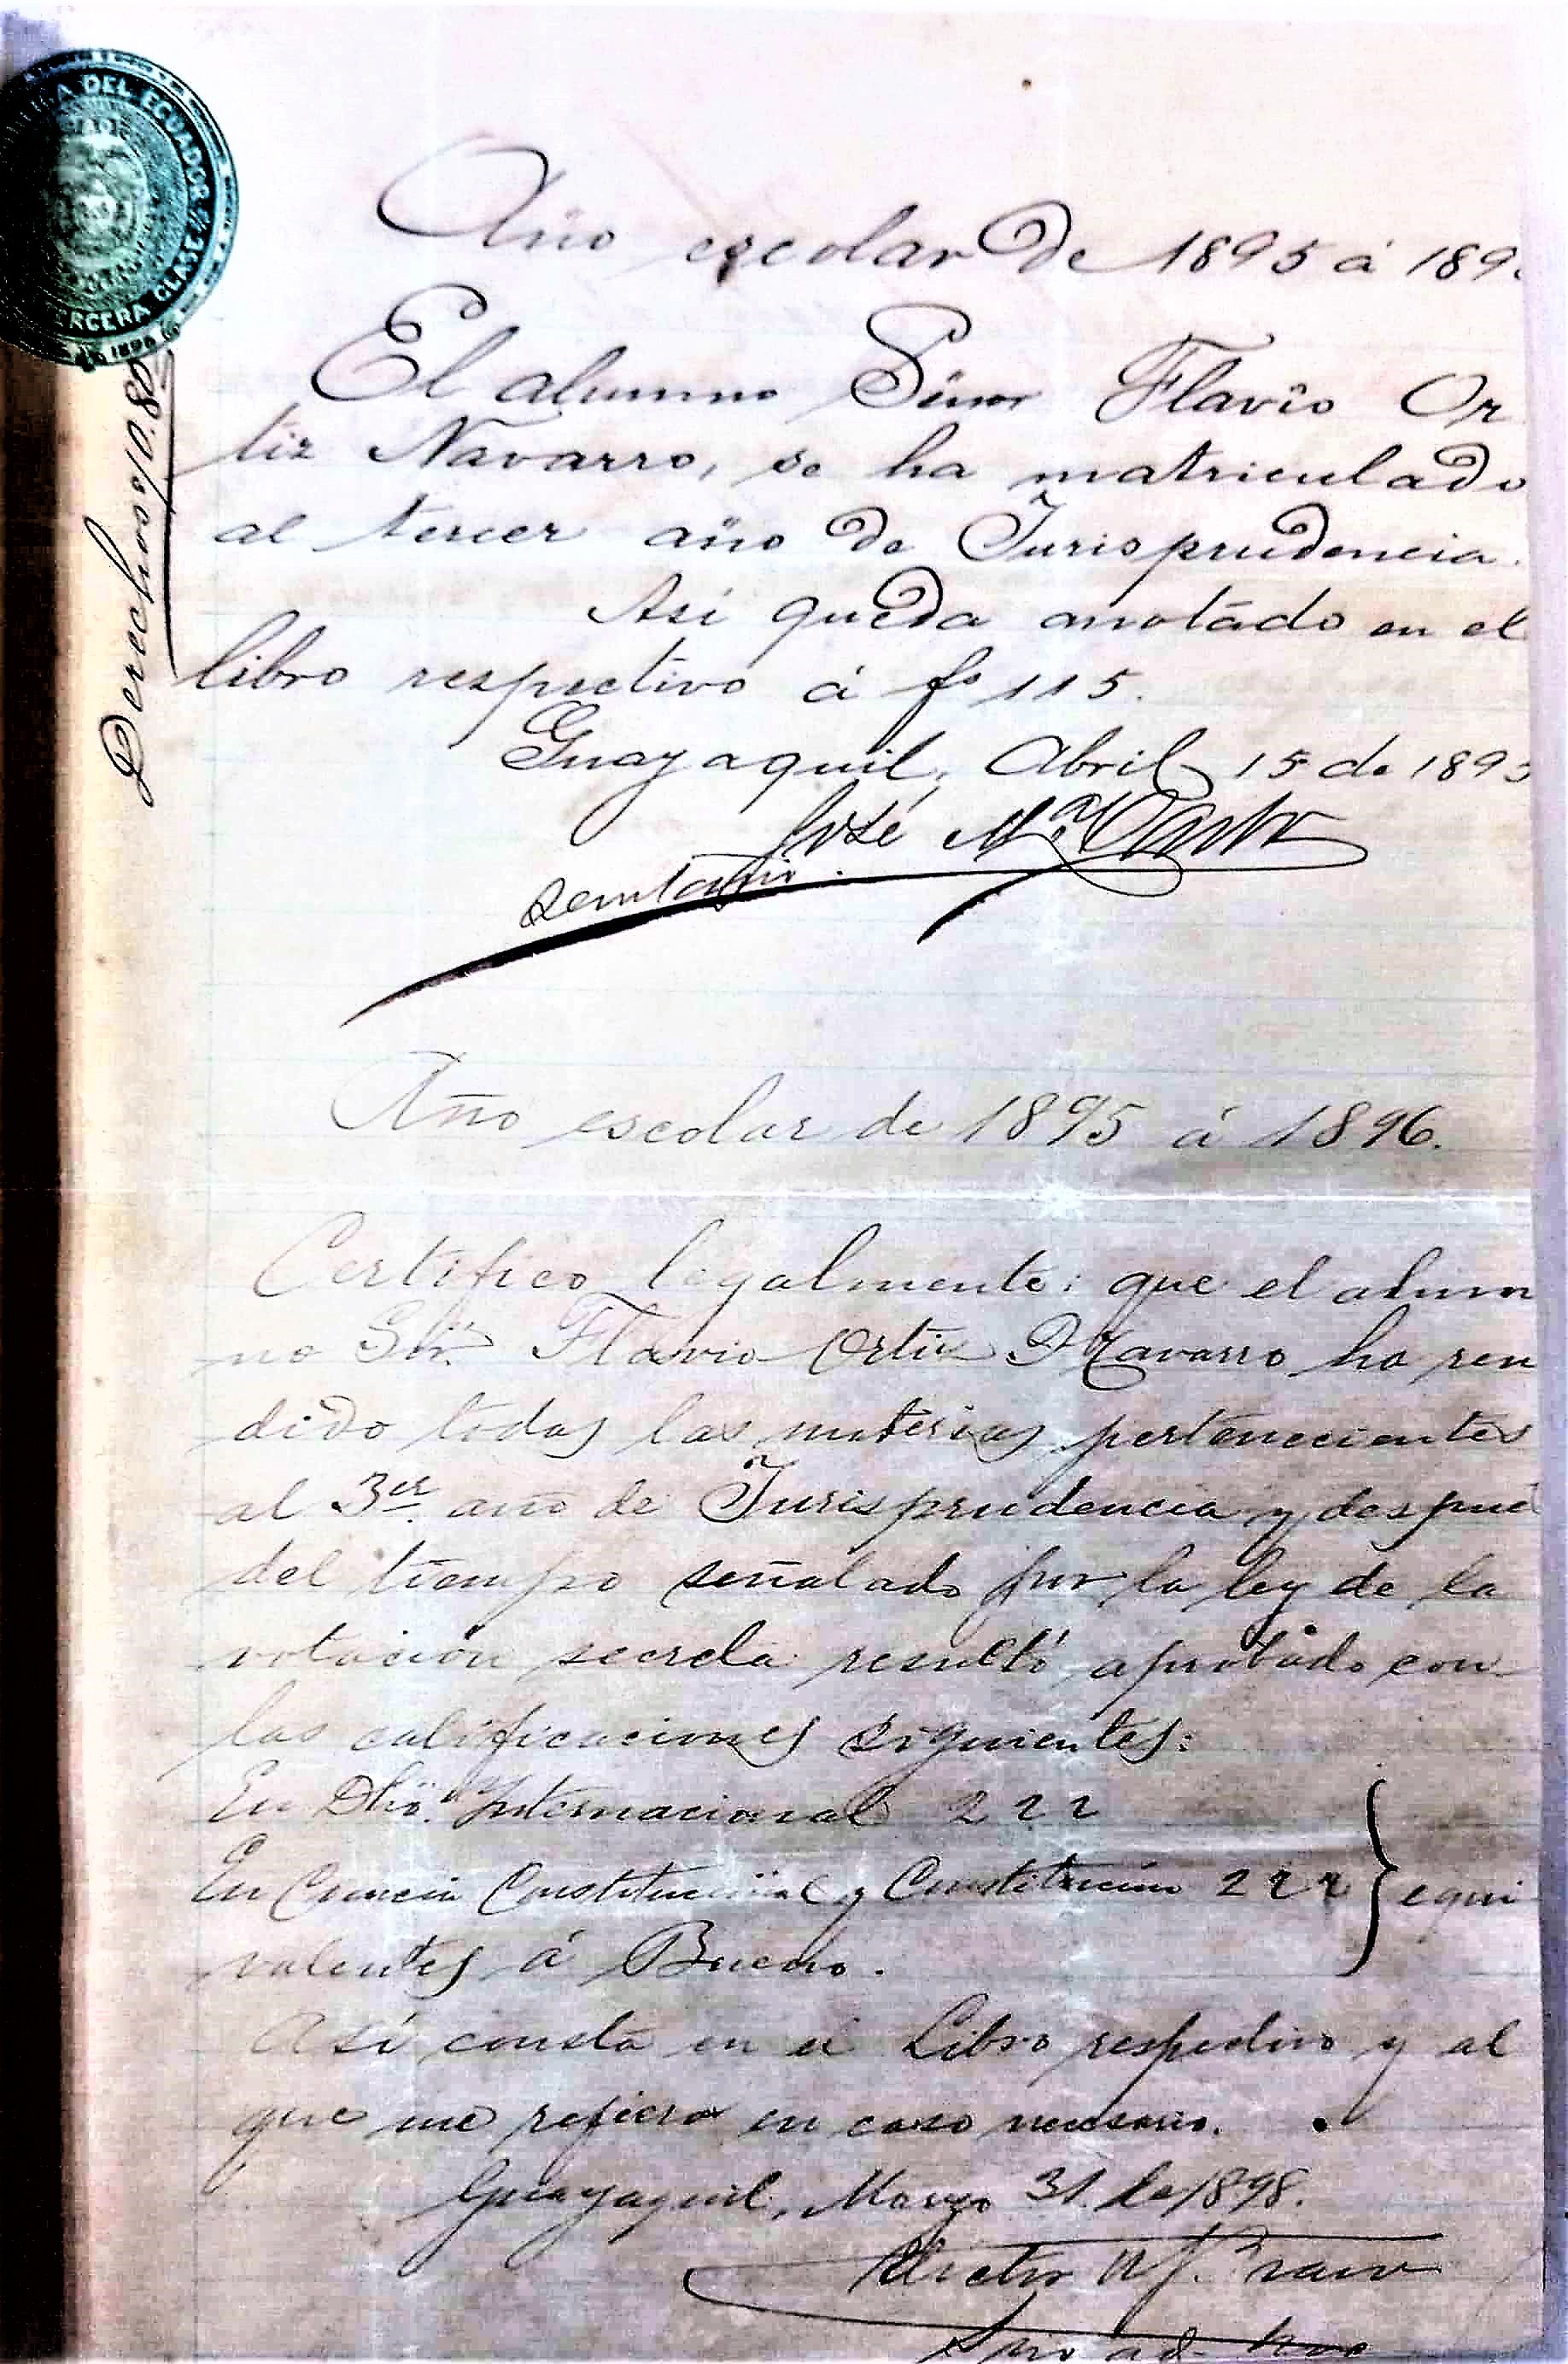 A DEL ECUADOR
TERCERA CLASE
1896
Derechos s/0.80
Año escolar de 1895 á 189
El alumno Señor Flavio Or
tiz Navarro, se ha matriculado
al tercer año de Jurisprudencia.
Así queda anotado en el
libro respectivo á fs 115.
Guayaquil, Abril 15 de 1895
José Ma.
secretario.
Año escolar de 1895 á 1896.
Certifico legalmente: que el alum
no Sr. Flavio Ortiz Navarro ha ren
dido todas las materias pertenecientes
al 3er. año de Jurisprudencia y despué
del tiempo señalado por la ley de la
votación secreta resultó aprobado con
las calificaciones siguientes:
En Dho. Internacional 2 2 2
En Ciencia Constitucional y Constitución 2 2 2 } equi
valentes á Bueno.
Así consta en el Libro respectivo y al
que me refiero en caso necesario.
Guayaquil, Marzo 31 de 1898.
Victor M.
Srio ad-hoc